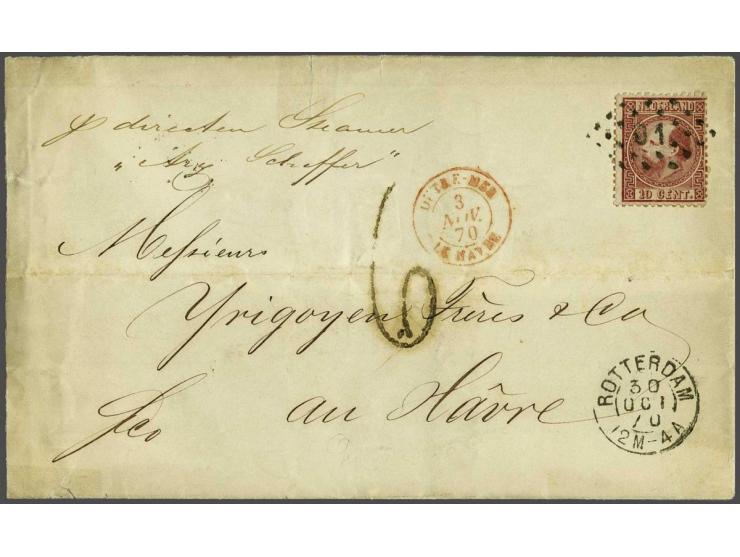 p directen Steamer
"Ary Scheffer"
NEDERLAND
91
10 CENT.
OUTRE-MER
3
NOV.
70
LE HAVRE
6
Messieurs
Yrigoyen Frères & Co
fco
au Hâvre
ROTTERDAM
30
OCT
70
12M-4A